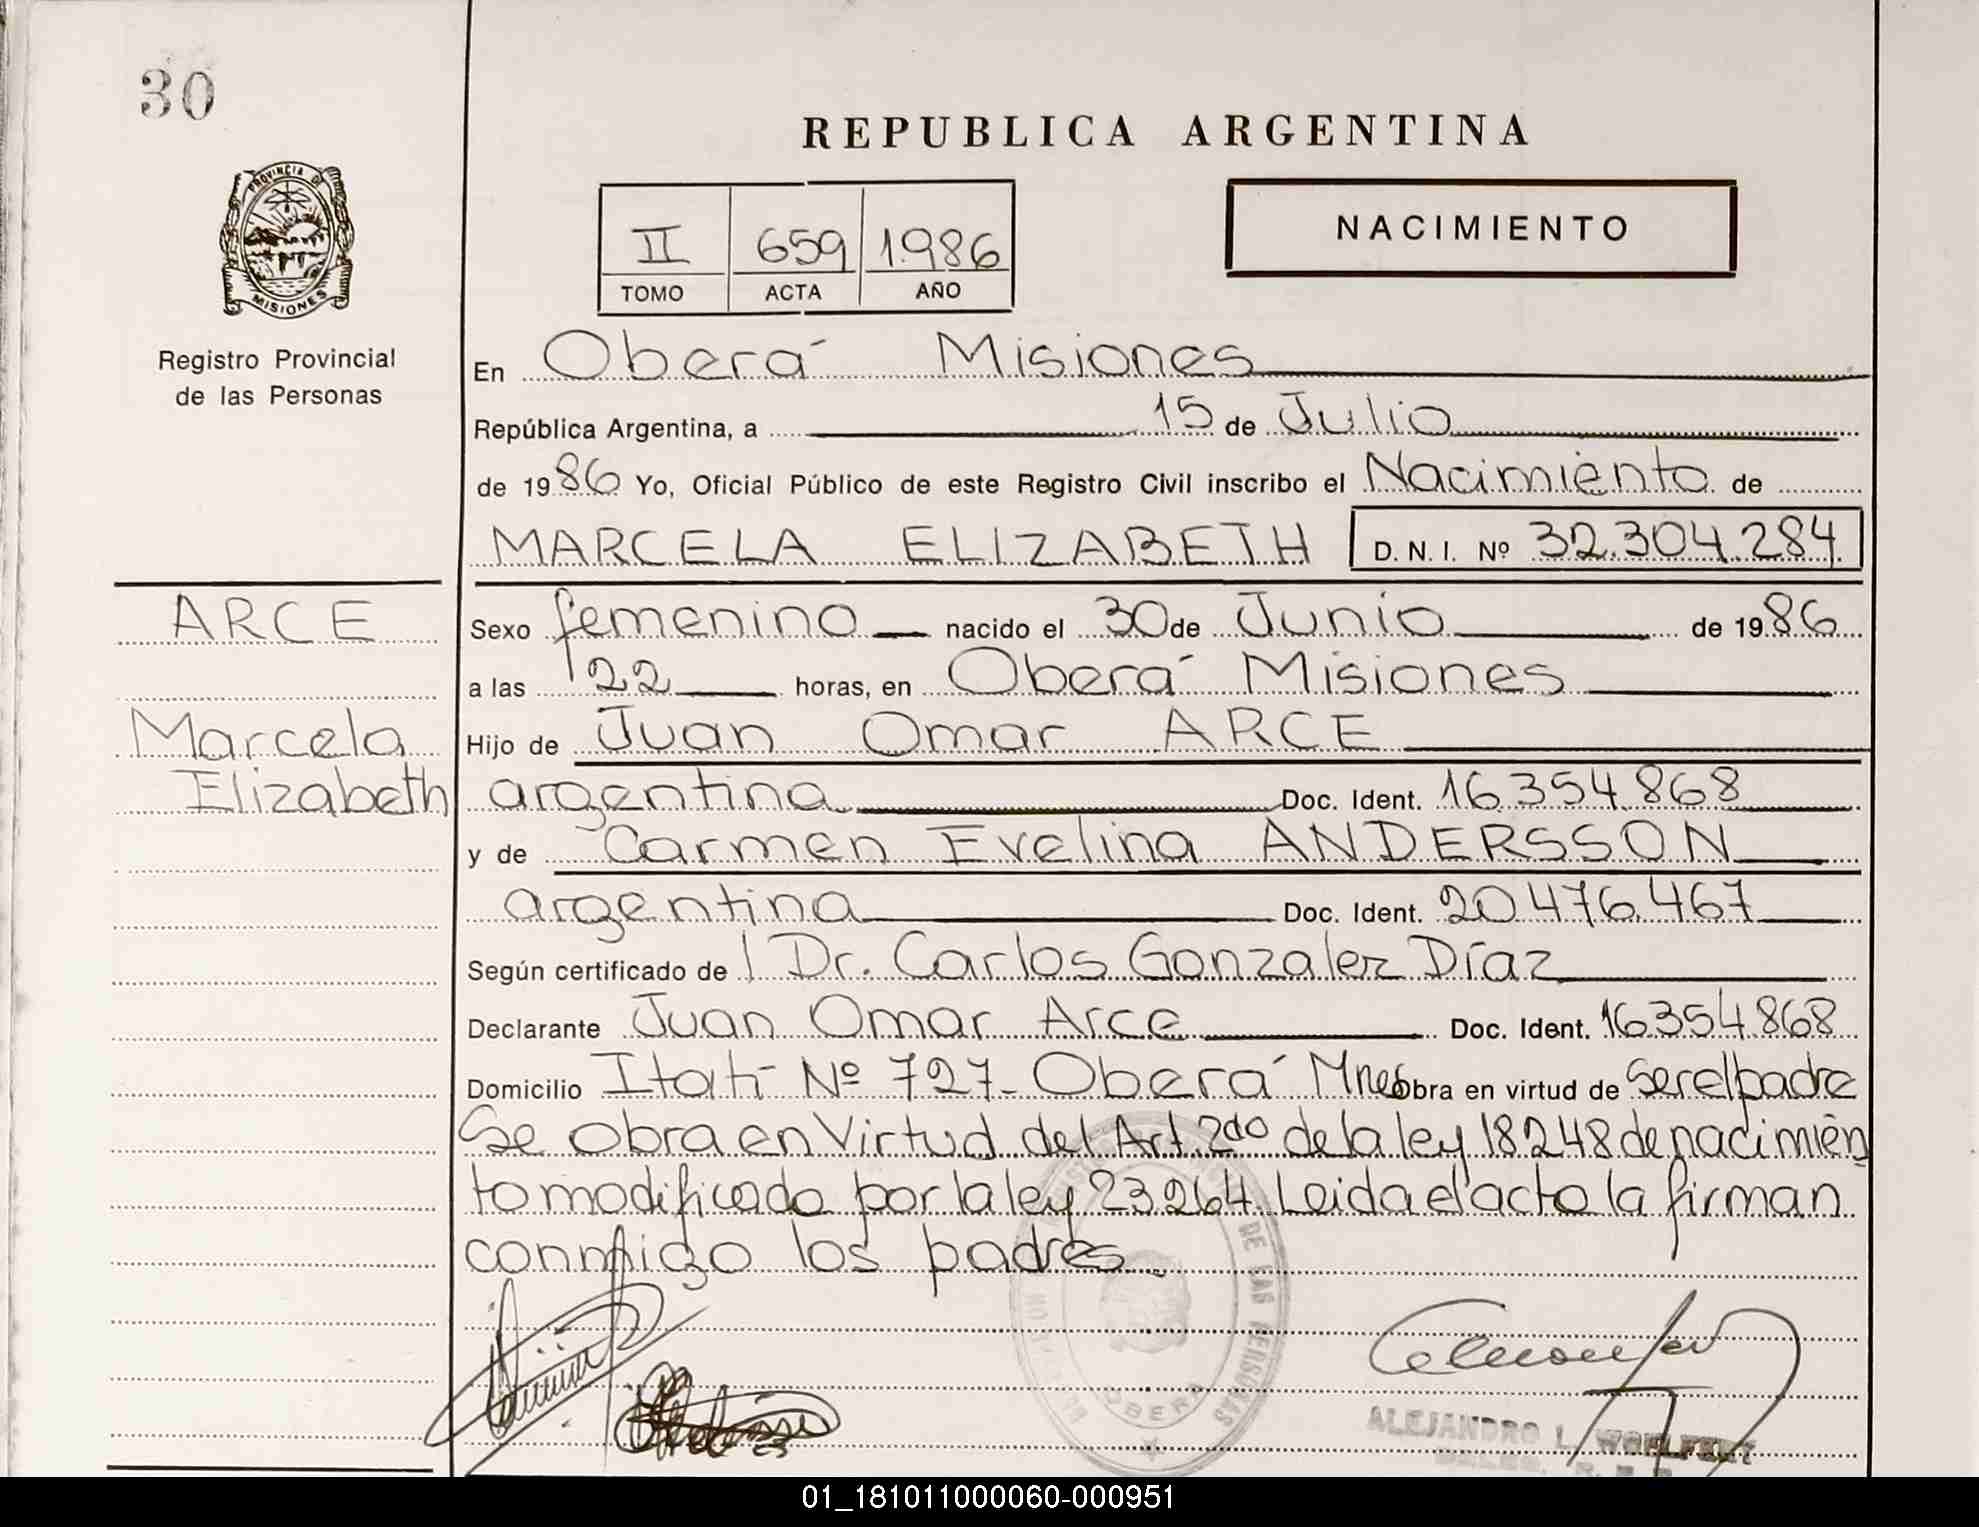 30
REPUBLICA ARGENTINA
PROVINCIA DE
MISIONES
II 659 1.986
TOMO ACTA AÑO
NACIMIENTO
Registro Provincial
de las Personas
En Oberá Misiones
República Argentina, a 15 de Julio
de 1986 Yo, Oficial Público de este Registro Civil inscribo el Nacimiento de
MARCELA ELIZABETH D. N. I. Nº 32.304.284
ARCE
Marcela
Elizabeth
Sexo femenino nacido el 30 de Junio de 1986
a las 22 horas, en Oberá Misiones
Hijo de Juan Omar ARCE
argentina Doc. Ident. 16.354.868
y de Carmen Evelina ANDERSSON
argentina Doc. Ident. 20.476.467
Según certificado de Dr. Carlos Gonzalez Díaz
Declarante Juan Omar Arce Doc. Ident. 16.354.868
Domicilio Itatí Nº 727- Oberá Mnes obra en virtud de ser el padre
Se obra en Virtud del Art. 2do de la ley 18248 de nacimien
to modificado por la ley 23.264. Leida el acto la firman
conmigo los padres.
DE LAS PERSONAS
OBERA
ALEJANDRO L. WOHLFERT
01_181011000060-000951